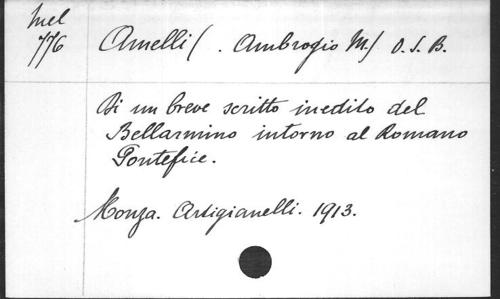 Mel
776
Amelli (. Ambrogio M.) O. S. B.
Di un breve scritto inedito del
Bellarmino intorno al Romano
Pontefice.
Monza. Artigianelli. 1913.